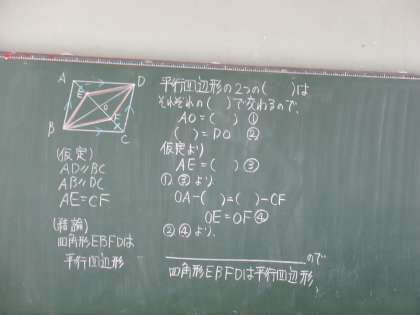 A
D
E
O
F
B
C
(仮定)
AD∥BC
AB∥DC
AE=CF
(結論)
四角形EBFDは
平行四辺形
平行四辺形の2つの(　)は
それぞれの(　)で交わるので、
AO=(　) ①
(　)=DO ②
仮定より
AE=(　) ③
①,③より、
OA-(　)=(　)-CF
OE=OF④
②,④より、
ので
四角形EBFDは平行四辺形